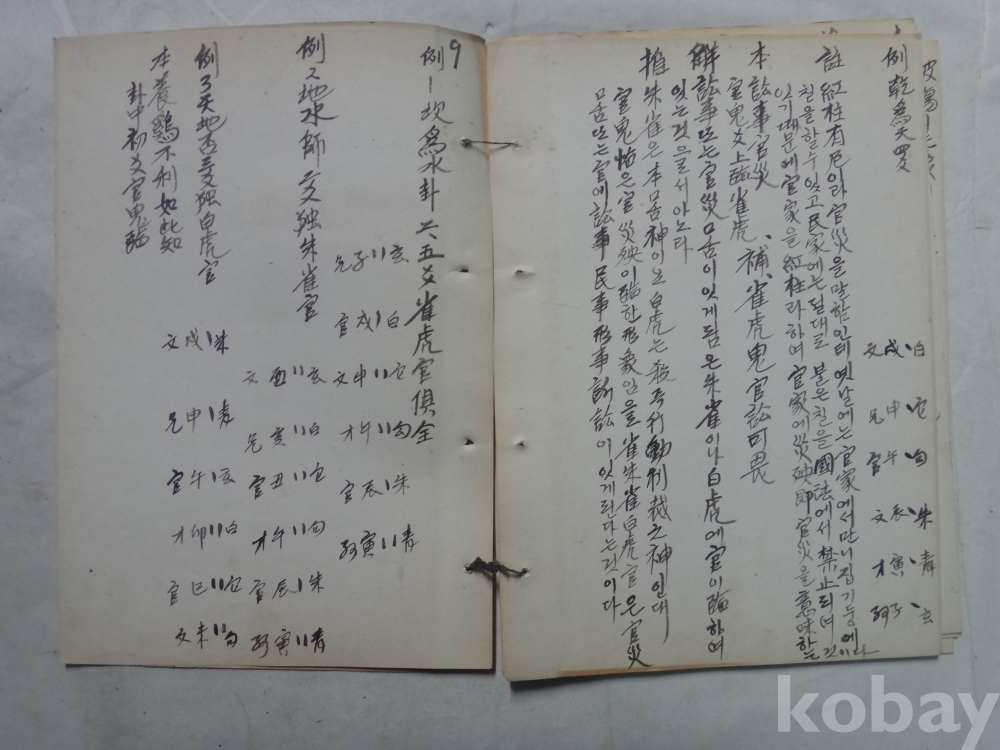 例 乾爲天 四爻
文 戌 、 白
兄 申 、 它
官 午 、 句
文 辰 、 朱
才 寅 、 青
孫 子 、 玄
註 紅柱有厄이라 官災을 말함인데 옛날에는 官家에서만니 집기둥에
칠을할수잇고 民家에는 절대로 붉은칠을 國法에서 禁止되며
잇기때문에 官家을 紅柱라하며 官家에 災殃 即 官災을 意味하는
것이다
本 訟事官災、補、雀虎鬼官訟可畏
官鬼爻上臨雀虎
解 訟事又는 官災口舌이 잇게됨은 朱雀이나 白虎에 官이 臨하며
잇는것을 서 아노라
推 朱雀은 本 口舌神이노 白虎는 殺
官鬼 官災殃이 臨한 形象임을 雀朱雀白虎官은 官災
口舌 또는 官에 訟事 民事 形事 訴訟이 잇게된다는것이다
9
例1 坎爲水卦 六五爻雀虎官俱全
兄 子 〃 玄
官 戌 、 白
文 申 〃 它
才 午 〃 句
官 辰 、 朱
孫 寅 〃 青
例2 地水師 二爻独朱雀官
文 酉 〃 玄
兄 亥 〃 白
官 丑 〃 它
才 午 〃 句
官 辰 、 朱
孫 寅 〃 青
例3 天地否 二爻独白虎官
文 戌 、 朱
兄 申 、 青
官 午 、 玄
才 卯 〃 白
官 巳 〃 它
文 未 〃 句
本 養鷄不利如此知
卦中初爻官鬼臨
kobay